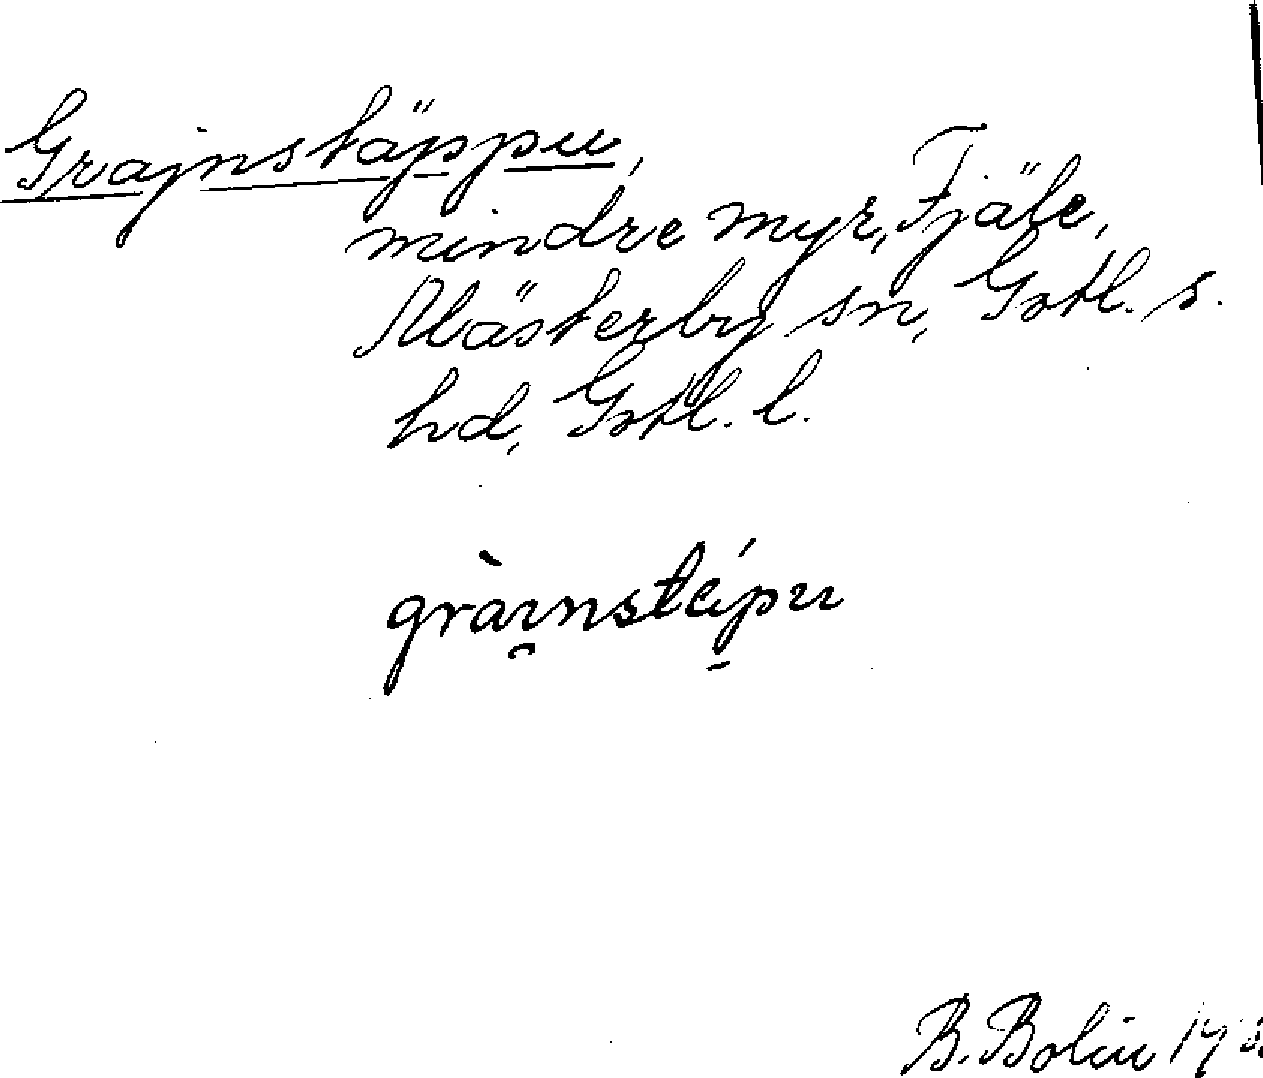 Grajnstäppu,
mindre myr, Fjäle,
Mästerby sn, Gotl. s.
hd, Gotl. l.
gràı̯nstɛ́p̠u
B. Bolin